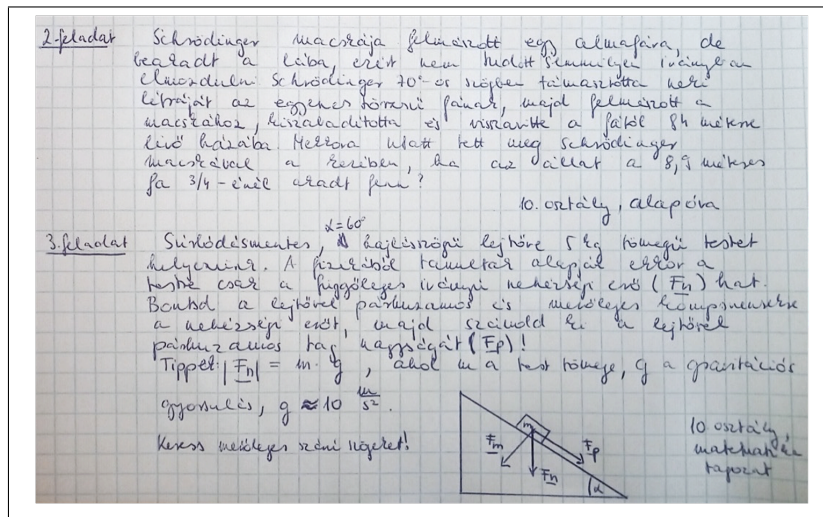 2. feladat Schrödinger macskája felmászott egy almafára, de
beáradt a lába, ezért nem tudott semmilyen irányban
elmozdulni. Schrödinger 70°-os szögben támasztotta neki
létráját az egyenes törzsű fának, majd felmászott a
macskához, kiszabadította és visszavitte a fától 84 méterre
lévő házába. Mekkora utat tett meg Schrödinger
macskával a kezében, ha az állat a 8,9 méteres
fa 3/4-énél akadt fenn?
10. osztály, alapóra
α=60°
3. feladat Súrlódásmentes, hajlásszögű lejtőre 5 kg tömegű testet
helyezünk. A fizikából tanultak alapján erről a
testre csak a függőleges irányú nehézségi erő (Fn) hat.
Bontsd a lejtővel párhuzamos és merőleges komponensekre
a nehézségi erőt, majd számold ki a lejtővel
párhuzamos tag nagyságát (Fp)!
Tipped: |Fn| = m · g, ahol m a test tömege, g a gravitációs
gyorsulás, g ≈ 10 m/s².
Keress merőleges szárú szögeket!
m
Fm
Fp
Fn
α
10 osztály,
matematika
tagozat